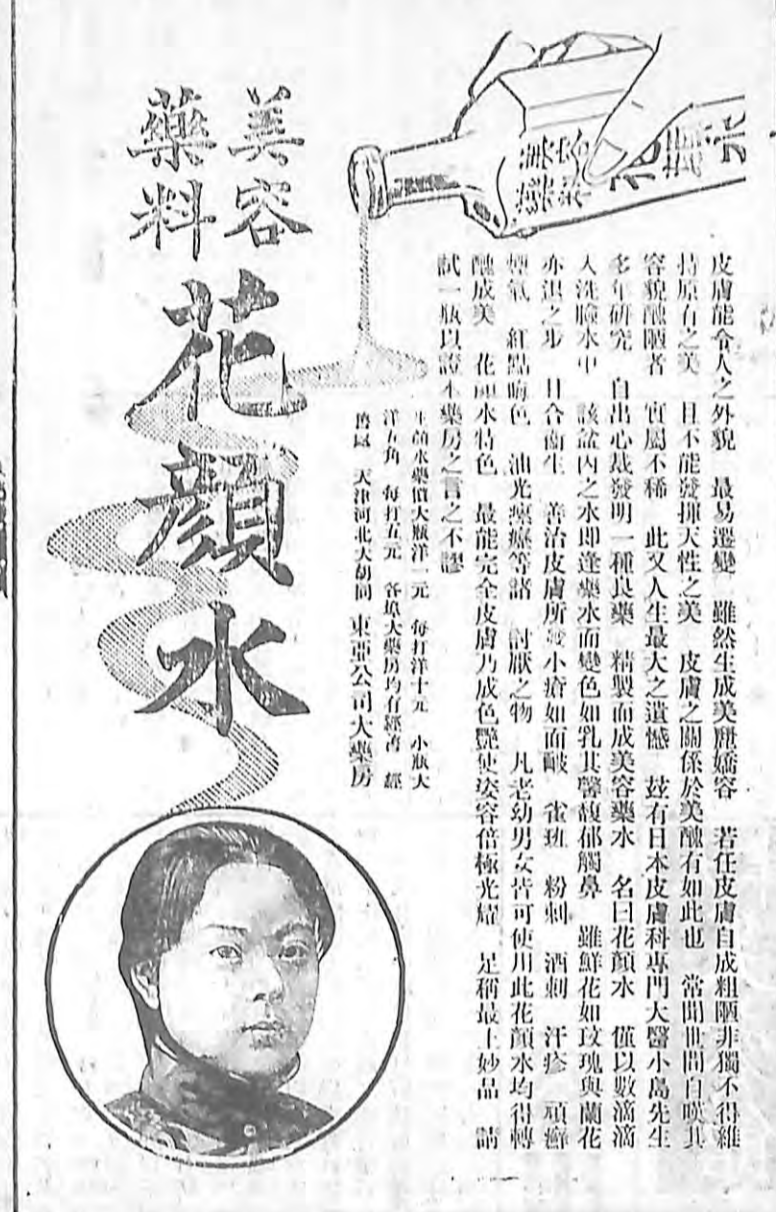 皮膚能令人之外貌　最易遷變　雖然生成美麗嬌容　若任皮膚自成粗陋非獨不得維
持原有之美　且不能發揮天性之美　皮膚之關係於美醜有如此也　常聞世間自嘆其
容貌醜陋者　實屬不稀　此又人生最大之遺憾　玆有日本皮膚科專門大醫小島先生
多年研究　自出心裁發明一種良藥　精製而成美容藥水　名曰花顏水　僅以數滴滴
入洗臉水中　該盆內之水即逢藥水而變色如乳其馨馥郁觸鼻　雖鮮花如玫瑰與蘭花
亦退之步　且合衛生　善治皮膚所發小瘡如面皰　雀斑　粉刺　酒刺　汗疹　頑癬
煙氣　紅點晦色　油光等諸　討厭之物　凡老幼男女皆可使用此花顏水均得轉
醜成美　花顏水特色　最能完全皮膚乃成色艷使姿容倍極光耀　足稱最上妙品　請
試一瓶以證本藥房之言之不謬
顏水藥價大瓶洋一元　每打洋十元　小瓶大
洋五角　每打五元　各埠大藥房均有經售　經
售處　天津河北大胡同　東亞公司大藥房
美容
藥料
花顏水
花顏水